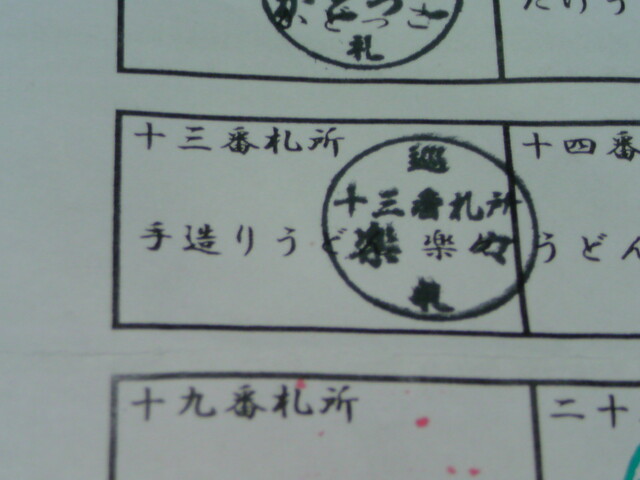 札
十三番札所
十四番
巡
十三番札所
手造りうど 楽
楽々
うどん
札
十九番札所
二十